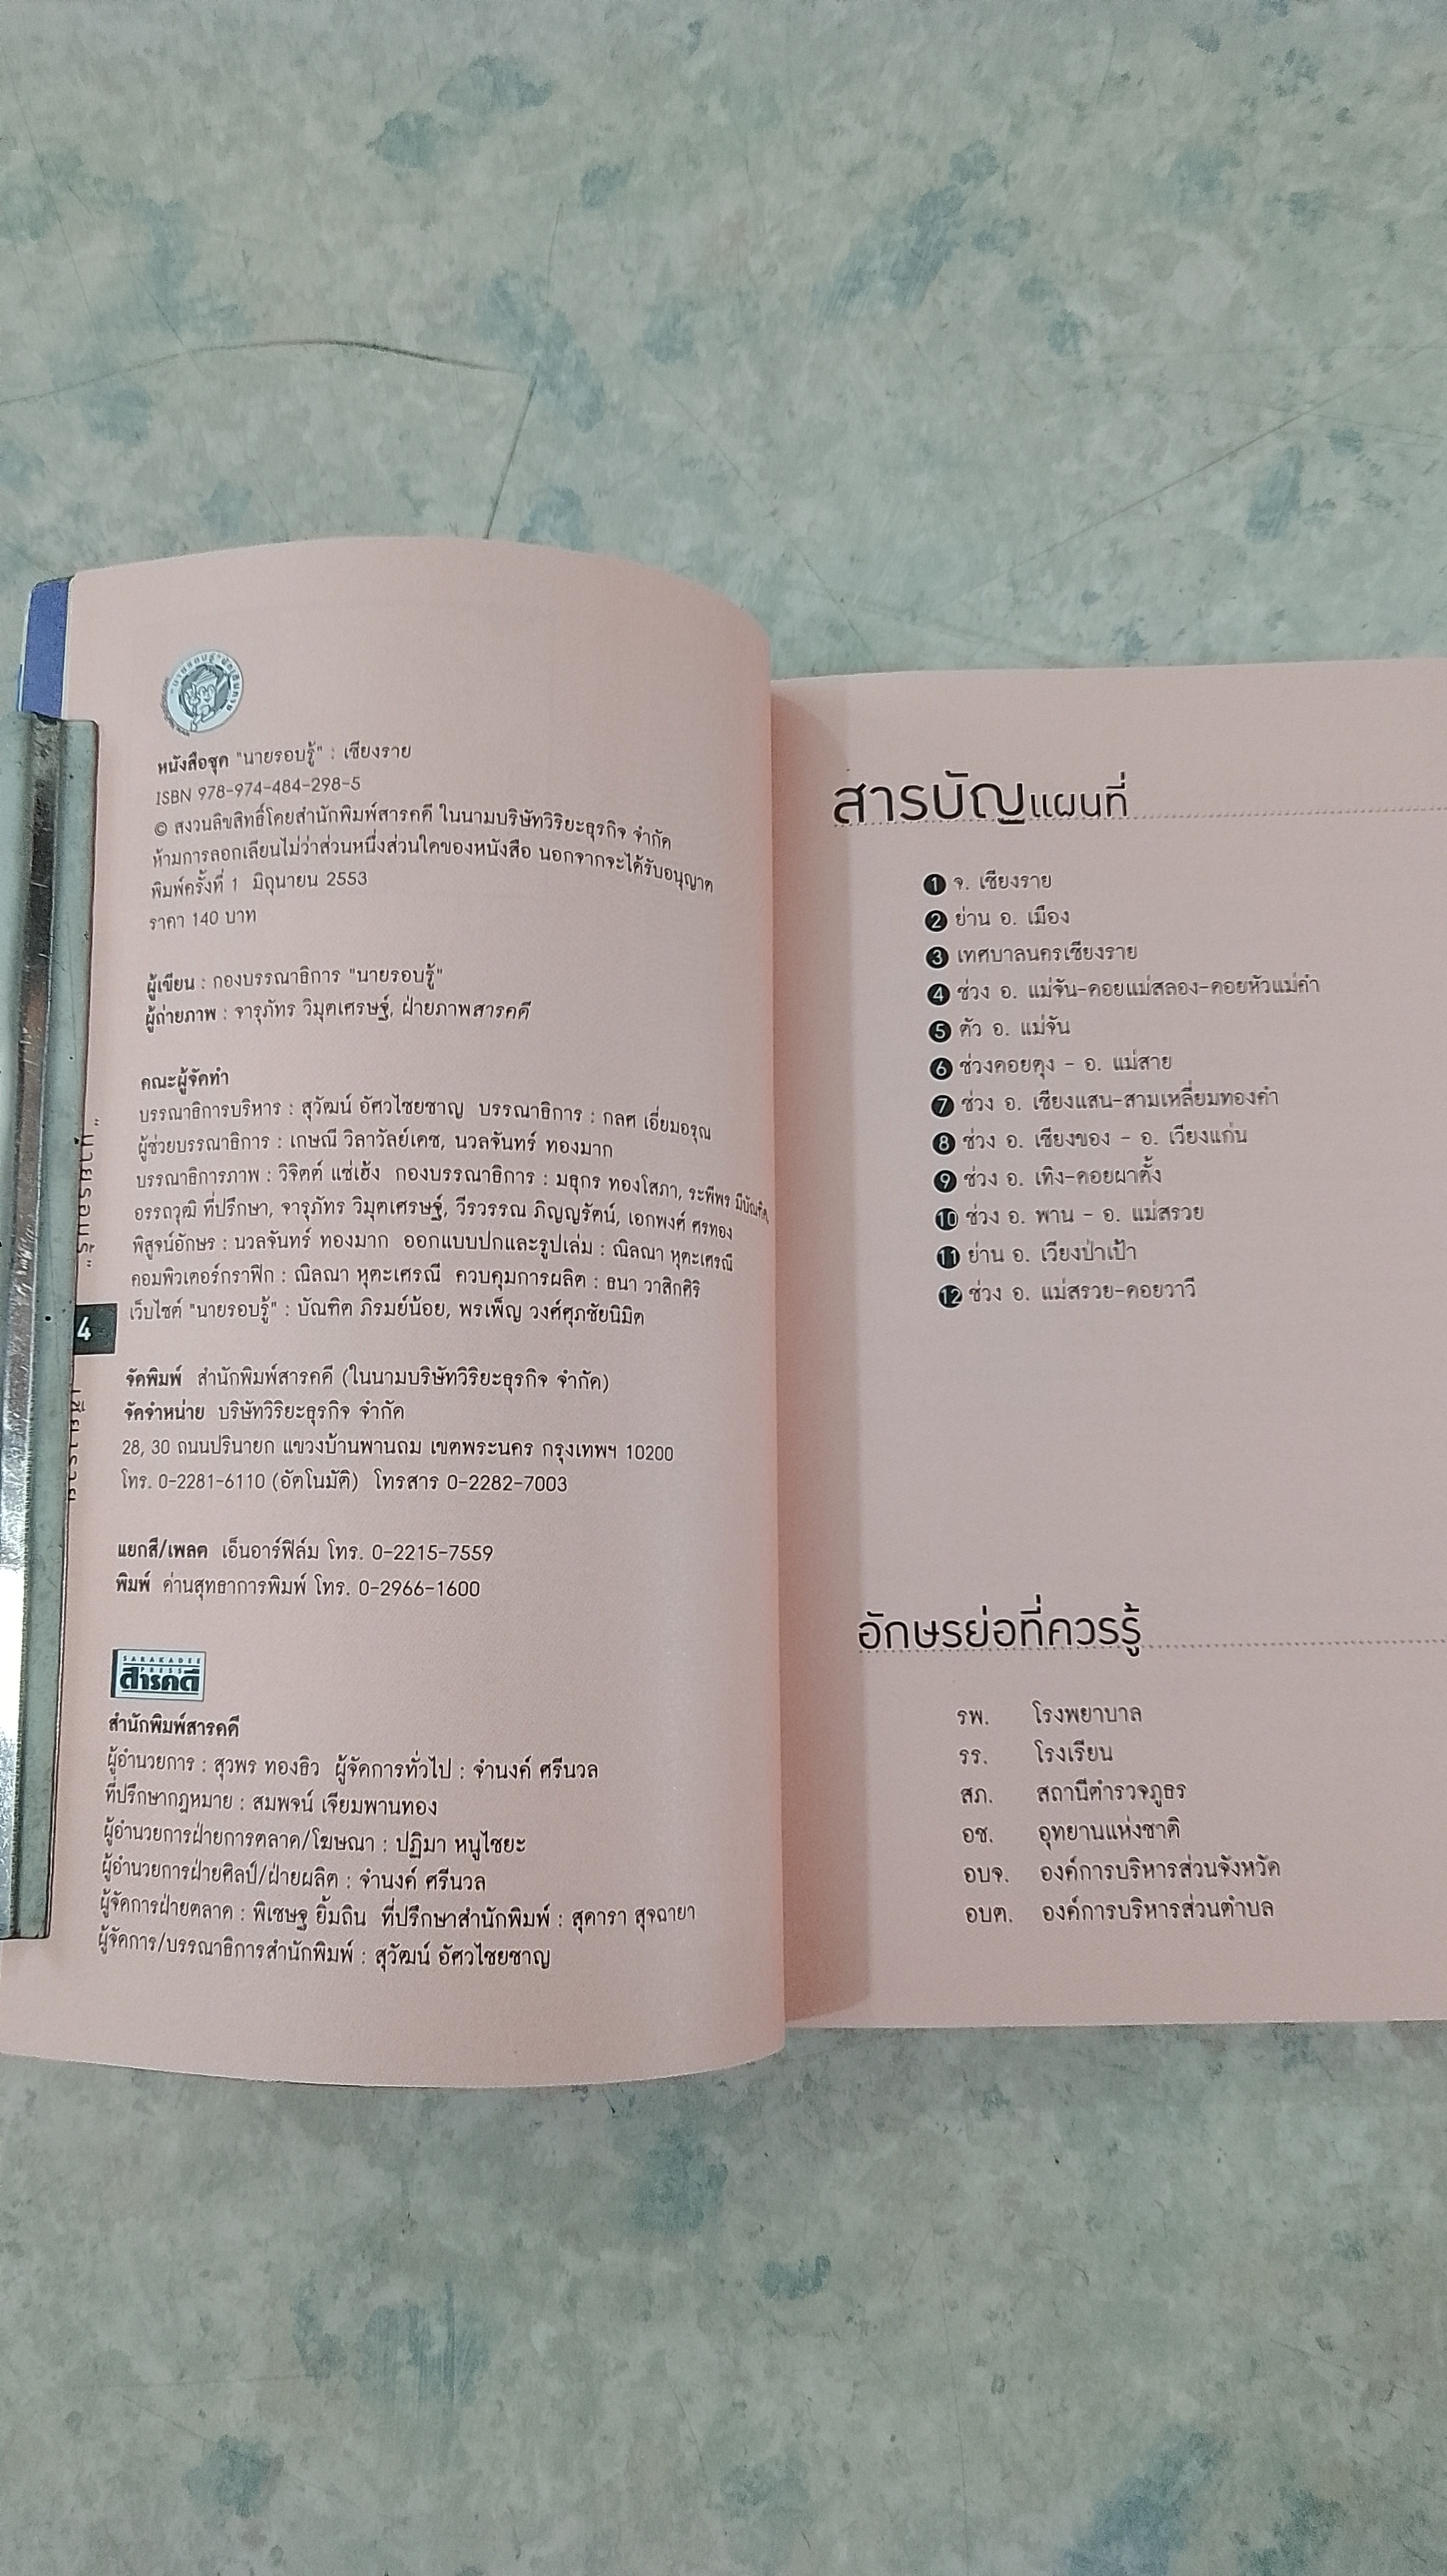 "นายรอบรู้" นักเดินทาง
หนังสือชุด "นายรอบรู้" : เชียงราย
ISBN 978-974-484-298-5
© สงวนลิขสิทธิ์โดยสำนักพิมพ์สารคดี ในนามบริษัทวิริยะธุรกิจ จำกัด
ห้ามการลอกเลียนไม่ว่าส่วนหนึ่งส่วนใดของหนังสือ นอกจากจะได้รับอนุญาต
พิมพ์ครั้งที่ 1 มิถุนายน 2553
ราคา 140 บาท
ผู้เขียน : กองบรรณาธิการ "นายรอบรู้"
ผู้ถ่ายภาพ : จารุภัทร วิมุตเศรษฐ์, ฝ่ายภาพสารคดี
คณะผู้จัดทำ
บรรณาธิการบริหาร : สุวัฒน์ อัศวไชยชาญ บรรณาธิการ : กลศ เอี่ยมอรุณ
ผู้ช่วยบรรณาธิการ : เกษณี วิลาวัลย์เดช, นวลจันทร์ ทองมาก
บรรณาธิการภาพ : วิจิตต์ แซ่เฮ้ง กองบรรณาธิการ : มธุกร ทองโสภา, ระพีพร มีบัณฑิต,
อรรถวุฒิ ที่ปรึกษา, จารุภัทร วิมุตเศรษฐ์, วีรวรรณ ภิญญรัตน์, เอกพงศ์ ศรทอง
พิสูจน์อักษร : นวลจันทร์ ทองมาก ออกแบบปกและรูปเล่ม : ณิลณา หุตะเศรณี
คอมพิวเตอร์กราฟิก : ณิลณา หุตะเศรณี ควบคุมการผลิต : ธนา วาสิกศิริ
เว็บไซต์ "นายรอบรู้" : บัณฑิต ภิรมย์น้อย, พรเพ็ญ วงศ์ศุภชัยนิมิต
"นายรอบรู้"
4
เชียงราย
จัดพิมพ์ สำนักพิมพ์สารคดี (ในนามบริษัทวิริยะธุรกิจ จำกัด)
จัดจำหน่าย บริษัทวิริยะธุรกิจ จำกัด
28, 30 ถนนปรินายก แขวงบ้านพานถม เขตพระนคร กรุงเทพฯ 10200
โทร. 0-2281-6110 (อัตโนมัติ) โทรสาร 0-2282-7003
แยกสี/เพลต เอ็นอาร์ฟิล์ม โทร. 0-2215-7559
พิมพ์ ด่านสุทธาการพิมพ์ โทร. 0-2966-1600
SARAKADEE
PRESS
สารคดี
สำนักพิมพ์สารคดี
ผู้อำนวยการ : สุวพร ทองธิว ผู้จัดการทั่วไป : จำนงค์ ศรีนวล
ที่ปรึกษากฎหมาย : สมพจน์ เจียมพานทอง
ผู้อำนวยการฝ่ายการตลาด/โฆษณา : ปฏิมา หนูไชยะ
ผู้อำนวยการฝ่ายศิลป์/ฝ่ายผลิต : จำนงค์ ศรีนวล
ผู้จัดการฝ่ายตลาด : พิเชษฐ ยิ้มถิน ที่ปรึกษาสำนักพิมพ์ : สุดารา สุจฉายา
ผู้จัดการ/บรรณาธิการสำนักพิมพ์ : สุวัฒน์ อัศวไชยชาญ
สารบัญแผนที่
1 จ. เชียงราย
2 ย่าน อ. เมือง
3 เทศบาลนครเชียงราย
4 ช่วง อ. แม่จัน-ดอยแม่สลอง-ดอยหัวแม่คำ
5 ตัว อ. แม่จัน
6 ช่วงดอยตุง - อ. แม่สาย
7 ช่วง อ. เชียงแสน-สามเหลี่ยมทองคำ
8 ช่วง อ. เชียงของ - อ. เวียงแก่น
9 ช่วง อ. เทิง-ดอยผาตั้ง
10 ช่วง อ. พาน - อ. แม่สรวย
11 ย่าน อ. เวียงป่าเป้า
12 ช่วง อ. แม่สรวย-ดอยวาวี
อักษรย่อที่ควรรู้
รพ. โรงพยาบาล
รร. โรงเรียน
สภ. สถานีตำรวจภูธร
อช. อุทยานแห่งชาติ
อบจ. องค์การบริหารส่วนจังหวัด
อบต. องค์การบริหารส่วนตำบล